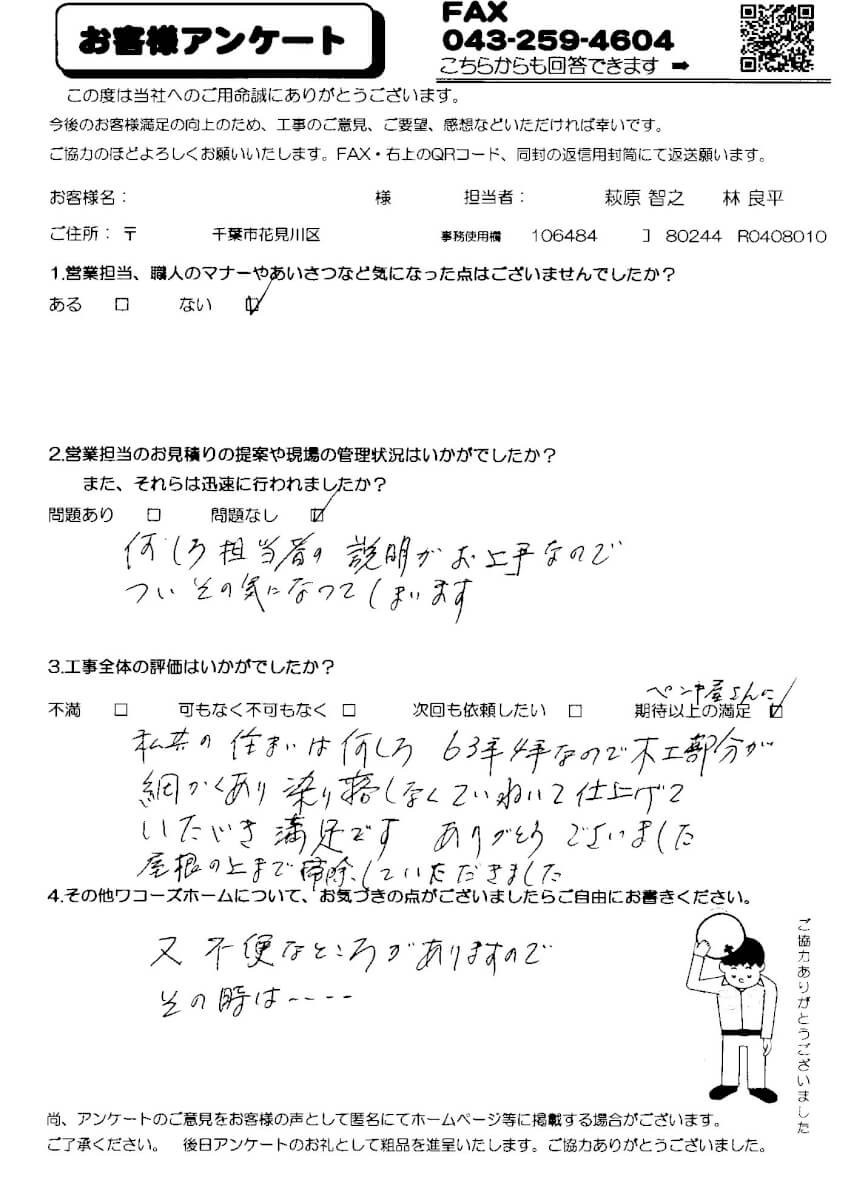 お客様アンケート
FAX
043-259-4604
こちらからも回答できます ➡
この度は当社へのご用命誠にありがとうございます。
今後のお客様満足の向上のため、工事のご意見、ご要望、感想などいただければ幸いです。
ご協力のほどよろしくお願いいたします。FAX・右上のQRコード、同封の返信用封筒にて返送願います。
お客様名： 様 担当者： 萩原 智之 林 良平
ご住所：〒 千葉市花見川区 事務使用欄 106484 ] 80244 R0408010
1.営業担当、職人のマナーやあいさつなど気になった点はございませんでしたか？
ある □ ない ☑
2.営業担当のお見積りの提案や現場の管理状況はいかがでしたか？
また、それらは迅速に行われましたか？
問題あり □ 問題なし ☑
何しろ担当者の説明がお上手なので
ついその気になってしまいます
3.工事全体の評価はいかがでしたか？
ペンキ屋さんに
不満 □ 可もなく不可もなく □ 次回も依頼したい □ 期待以上の満足 ☑
私共の住まいは何しろ 63年4年なので木工部分が
細かくあり 染り落しなくていねいて仕上げて
いただき満足です ありがとうございました
屋根の上まで掃除していただきました
4.その他ワコーズホームについて、お気づきの点がございましたらご自由にお書きください。
又不便なところがありますので
その時は----
ご協力ありがとうございました
尚、アンケートのご意見をお客様の声として匿名にてホームページ等に掲載する場合がございます。
ご了承ください。 後日アンケートのお礼として粗品を進呈いたします。ご協力ありがとうございました。